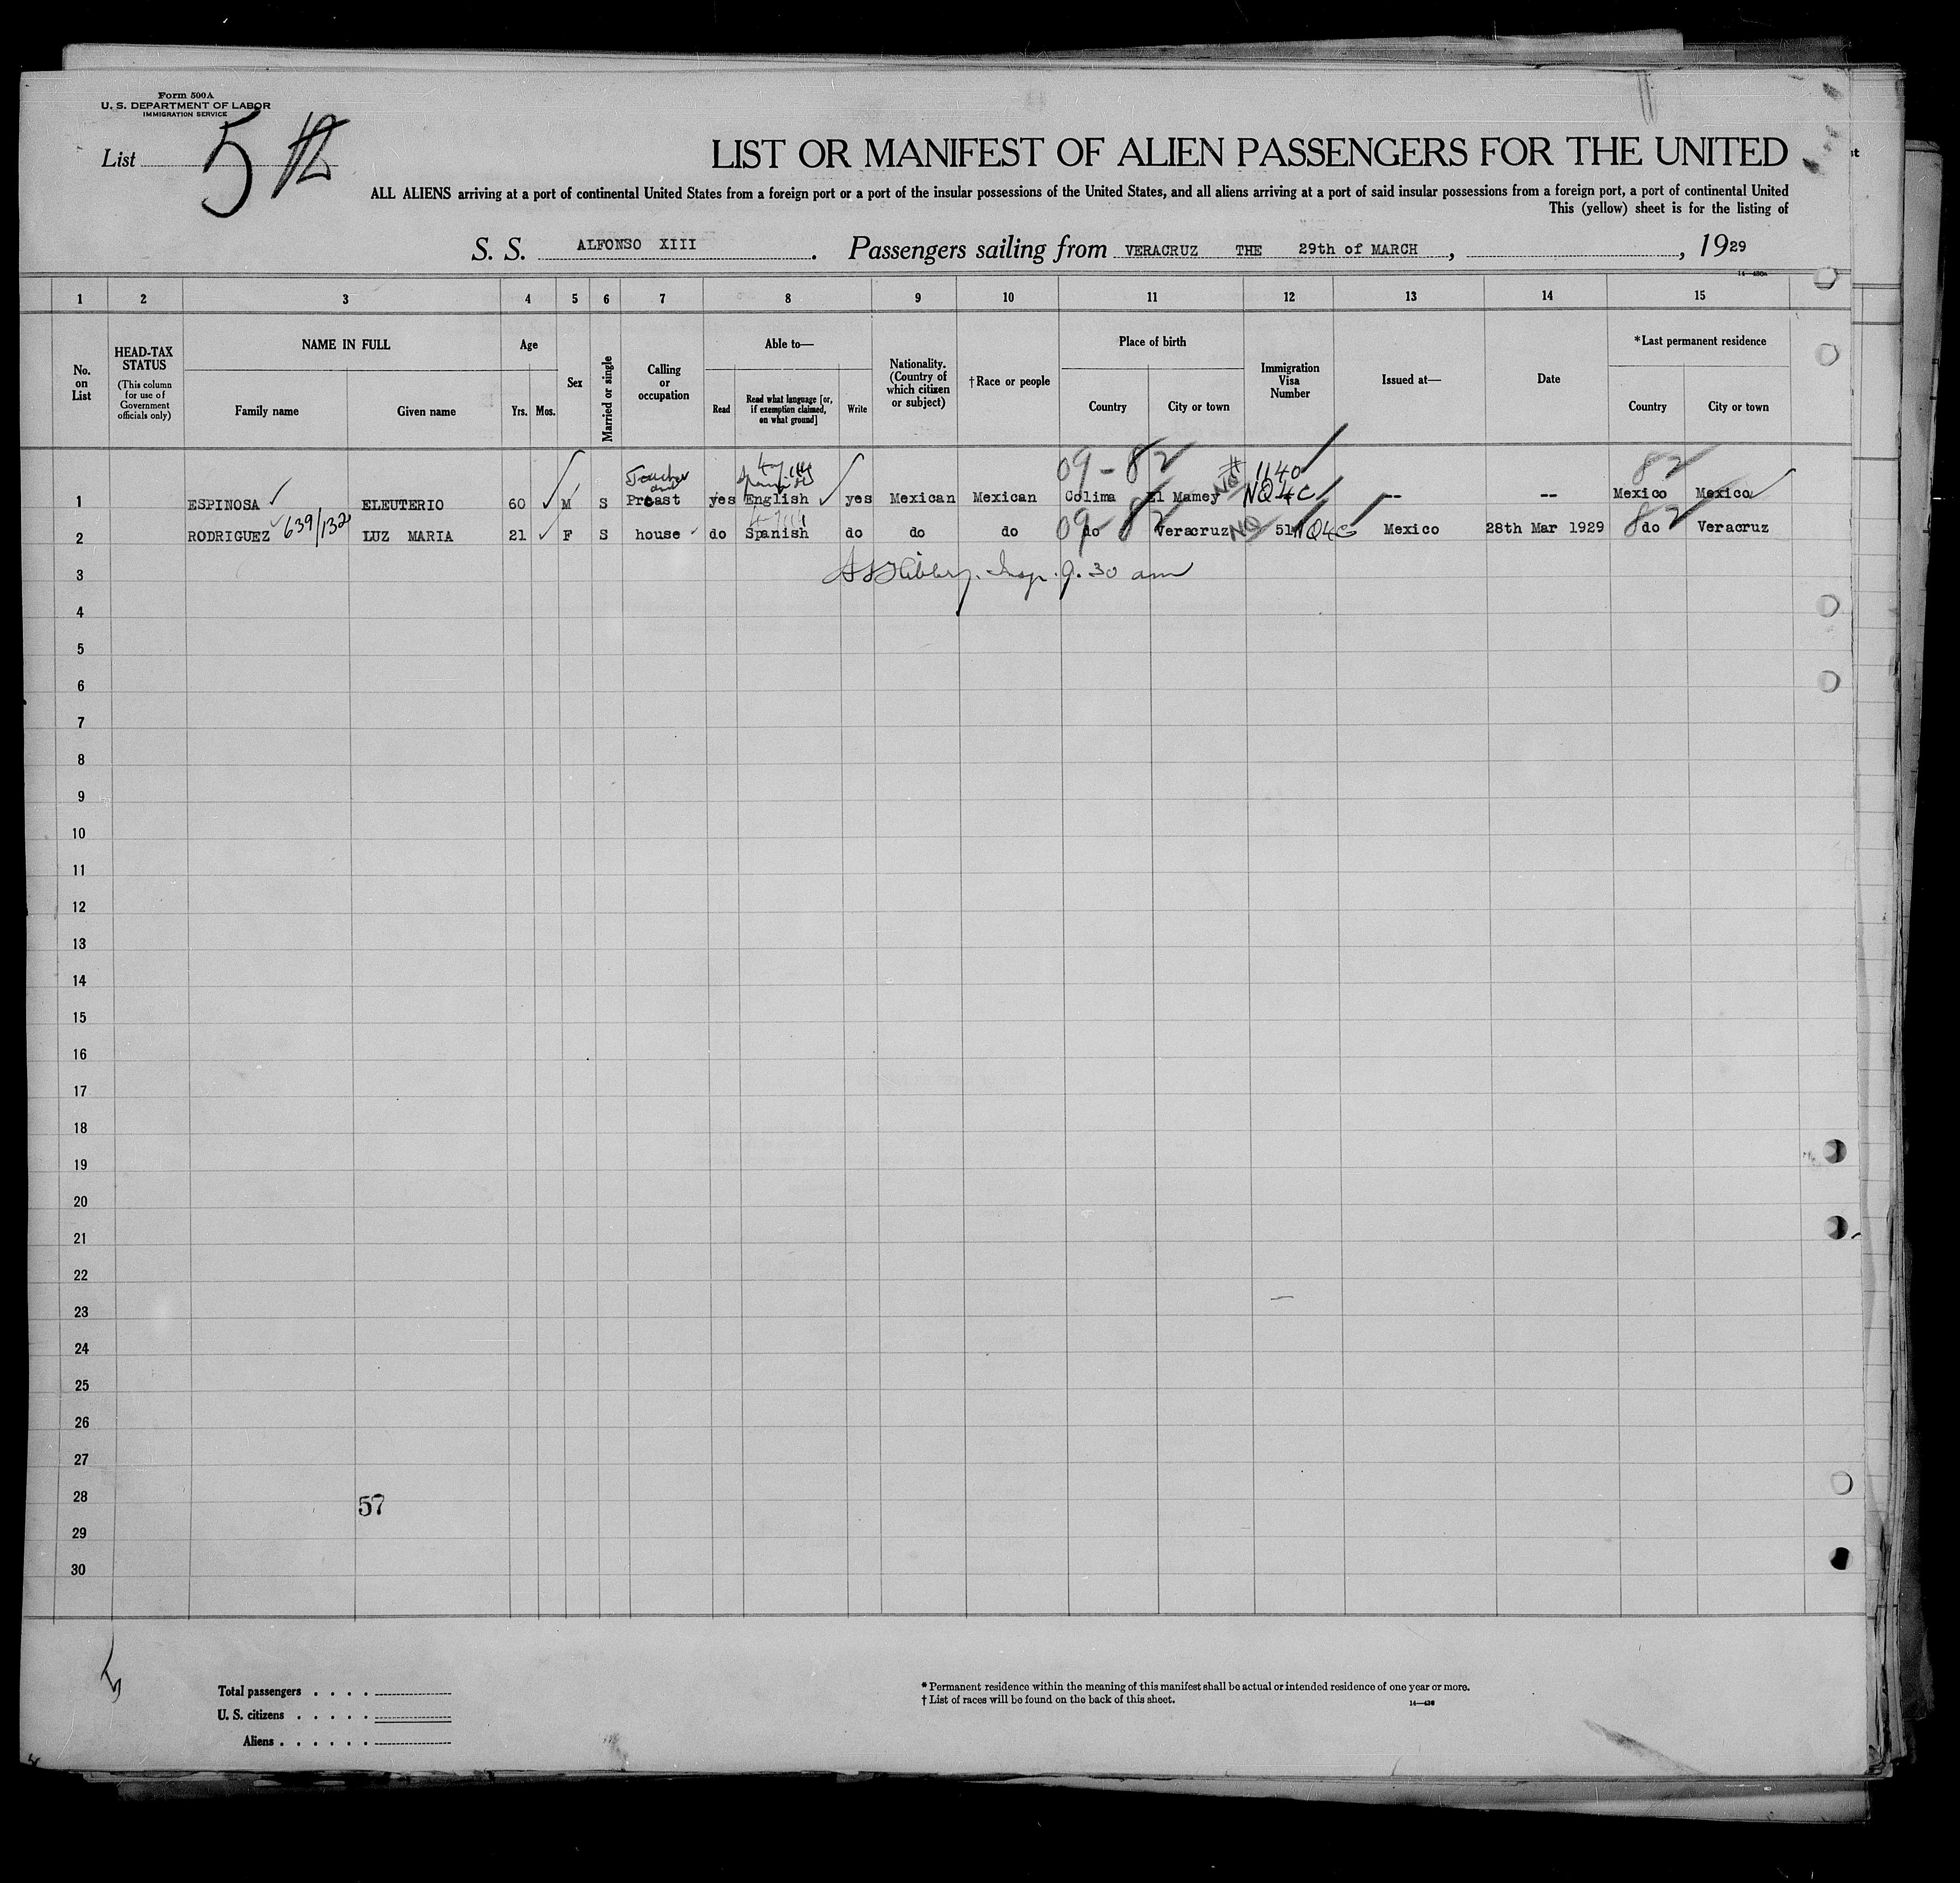 Form 500A
U. S. DEPARTMENT OF LABOR
IMMIGRATION SERVICE
List 5
LIST OR MANIFEST OF ALIEN PASSENGERS FOR THE UNITED
ALL ALIENS arriving at a port of continental United States from a foreign port or a port of the insular possessions of the United States, and all aliens arriving at a port of said insular possessions from a foreign port, a port of continental United
This (yellow) sheet is for the listing of
S. S. ALFONSO XIII. Passengers sailing from VERACRUZ THE 29th of MARCH, , 1929
1 2 3 4 5 6 7 8 9 10 11 12 13 14 15
No. on List
HEAD-TAX STATUS (This column for use of Government officials only)
NAME IN FULL
Family name
Given name
Age
Yrs. Mos.
Sex
Married or single
Calling or occupation
Able to—
Read
Read what language [or, if exemption claimed, on what ground]
Write
Nationality. (Country of which citizen or subject)
†Race or people
Place of birth
Country
City or town
Immigration Visa Number
Issued at—
Date
*Last permanent residence
Country
City or town
Teacher and Spanish 09-82 1140 82
1 ESPINOSA ELEUTERIO 60 M S Preast yes English yes Mexican Mexican Colima El Mamey NQ 4C -- -- Mexico Mexico
2 RODRIGUEZ 639/132 LUZ MARIA 21 F S house do Spanish do do do 09 do 82 Veracruz NQ 51 Q4C Mexico 28th Mar 1929 82 do Veracruz
3 Insp. 9.30 am
4
5
6
7
8
9
10
11
12
13
14
15
16
17
18
19
20
21
22
23
24
25
26
27
28 57
29
30
Total passengers . . . .
U. S. citizens . . . . .
Aliens . . . . . .
* Permanent residence within the meaning of this manifest shall be actual or intended residence of one year or more.
† List of races will be found on the back of this sheet.